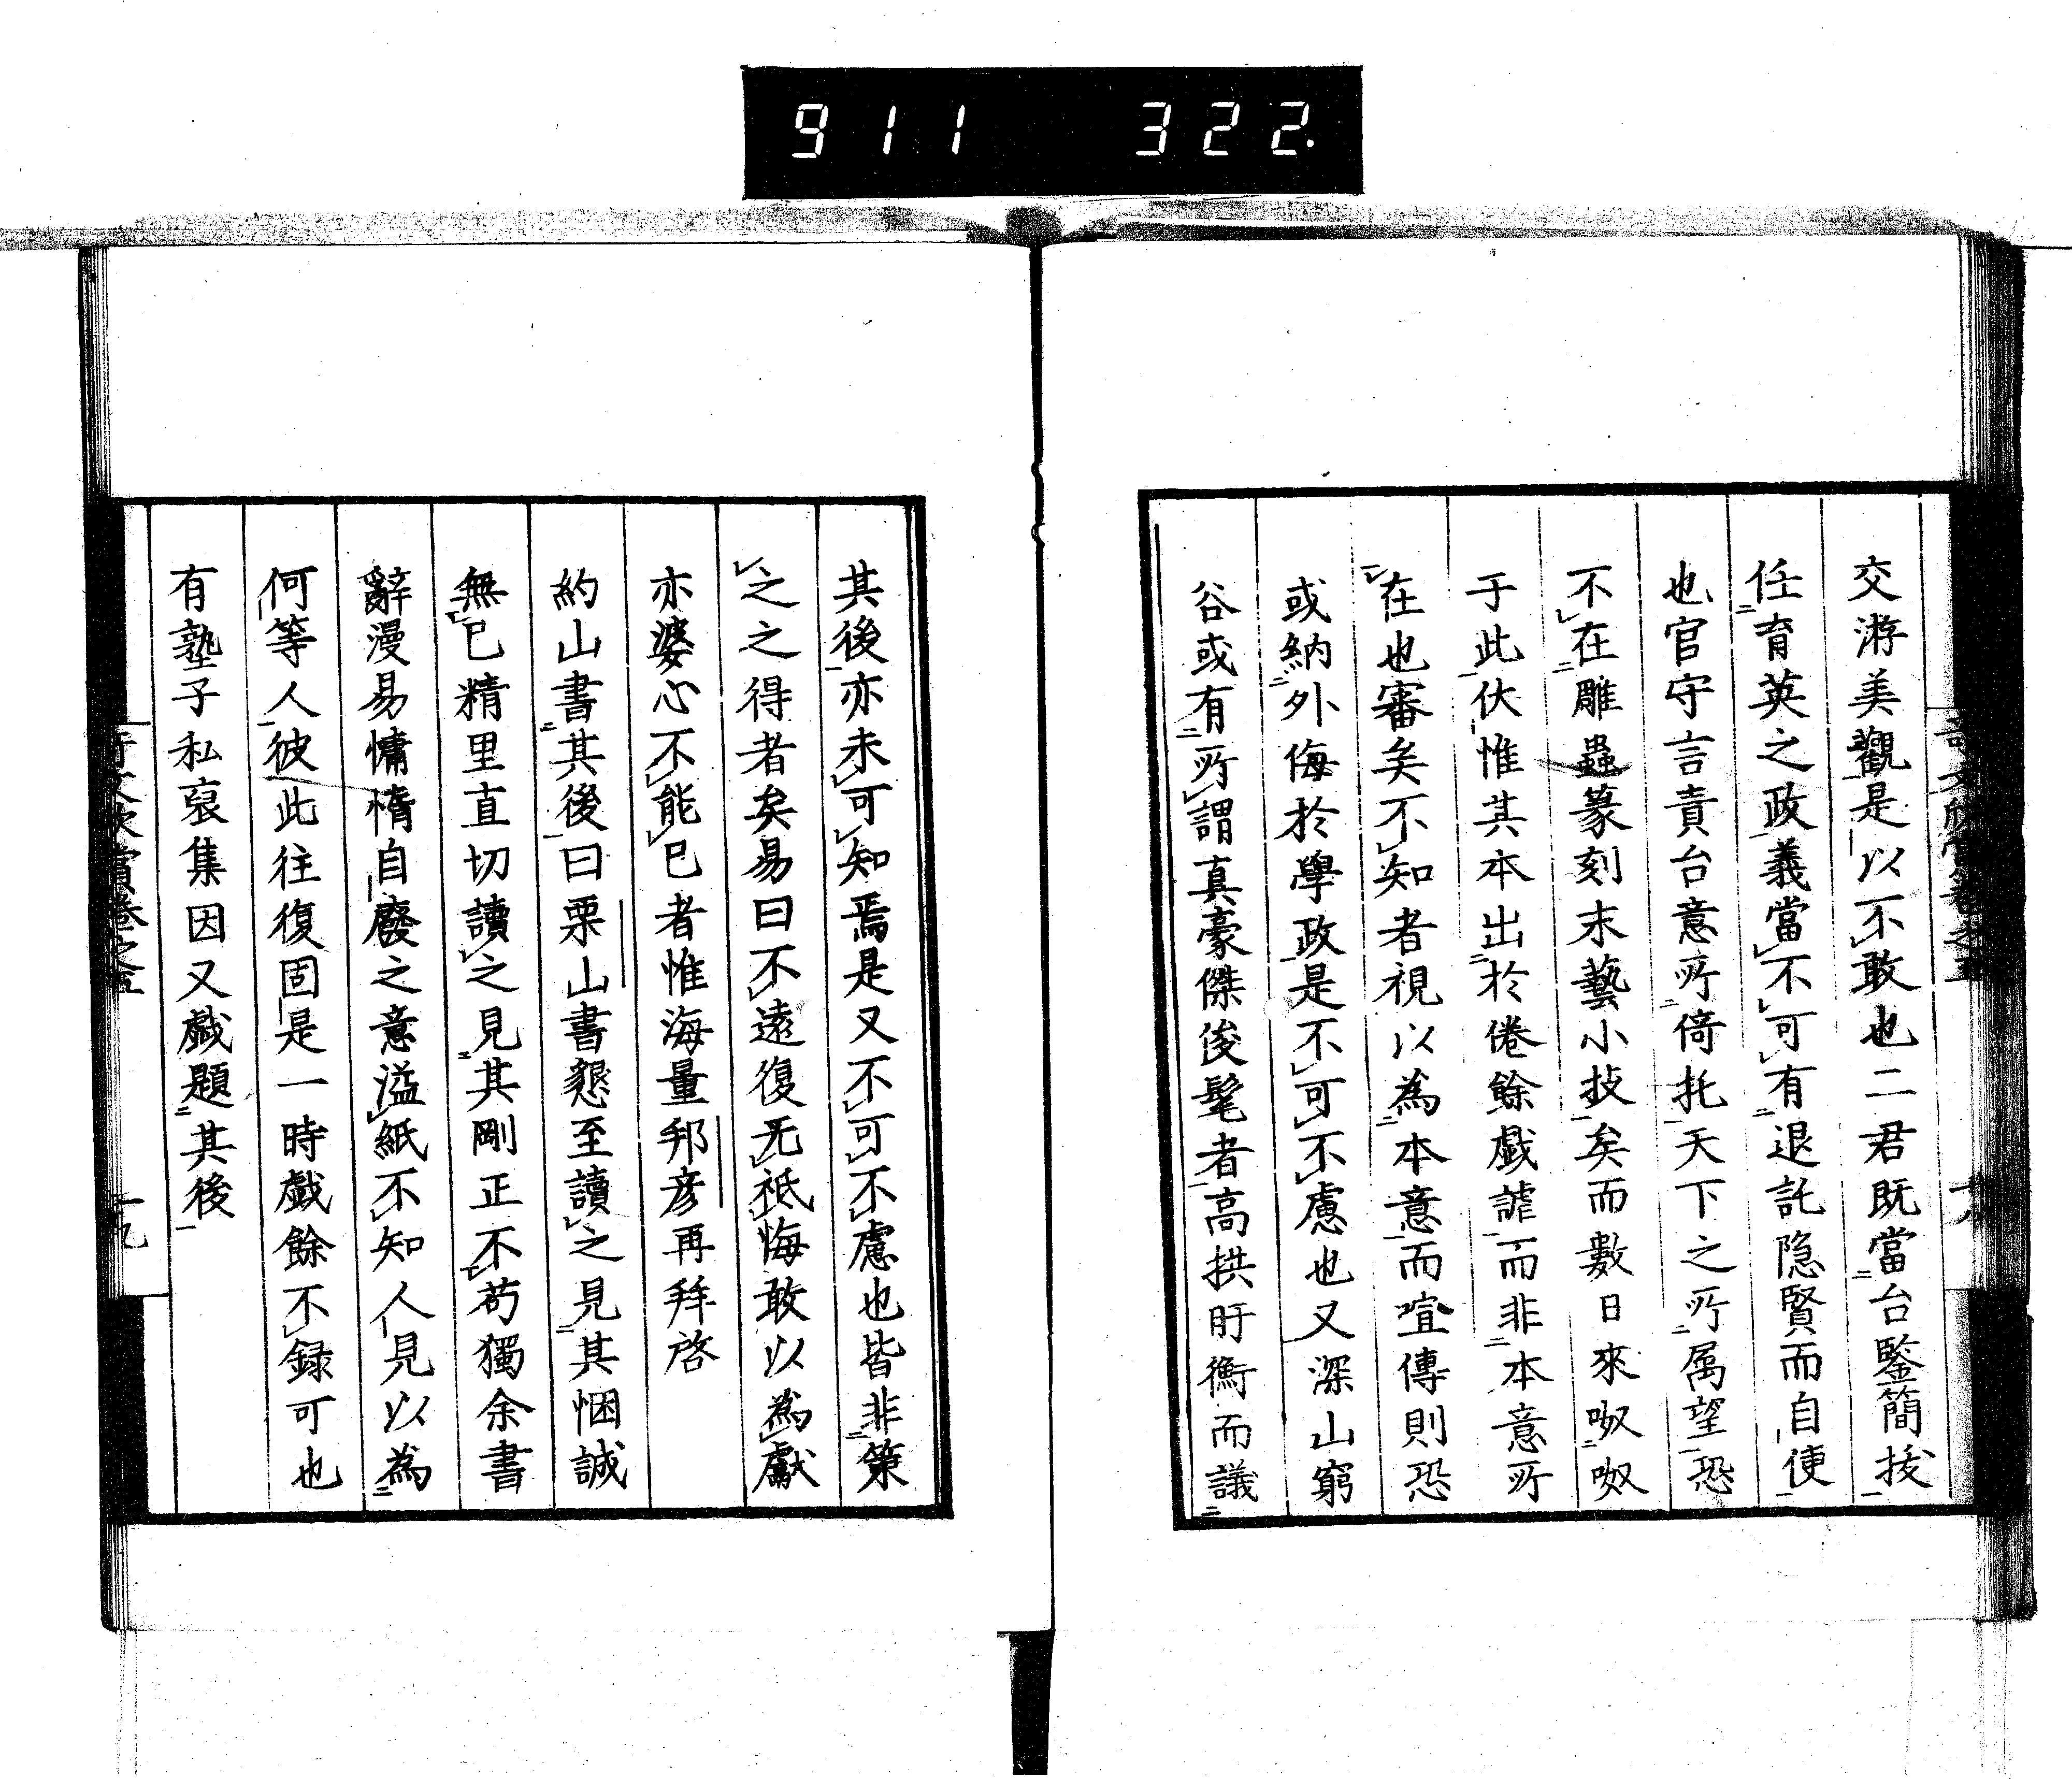 911 322.
交游美觀是以不敢也二君既當台鑒簡拔
任育英之政義當不可有退託隐賢而自使
也官守言責台意所倚托天下之所属望恐
不在雕蟲篆刻末藝小技矣而數日來呶呶
于此伏惟其本出於倦餘戯謔而非本意所
在也審矣不知者視以為本意而喧傳則恐
或納外侮於學政是不可不慮也又深山窮
谷或有所謂真豪傑俊髦者高拱盱衡而議
其後亦未可知焉是又不可不慮也皆非策
之之得者矣易曰不遠復无祗悔敢以為獻
亦婆心不能已者惟海量邦彦再拜啓
約山書其後曰栗山書懇至讀之見其悃誠
無已精里直切讀之見其剛正不苟獨余書
辭漫易慵惰自廢之意溢紙不知人見以為
何等人彼此往復固是一時戯餘不録可也
有塾子私裒集因又戯題其後